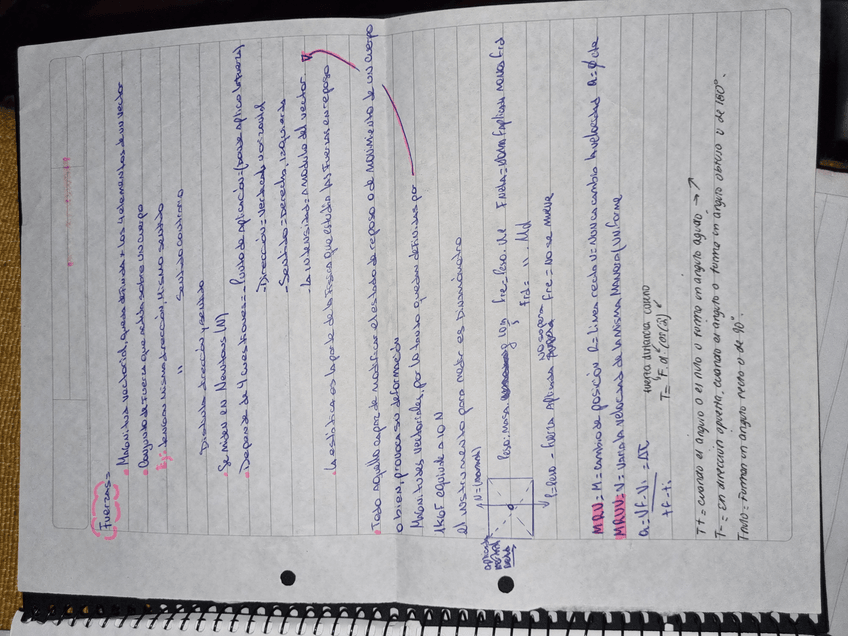 Fuerzas=
• Magnitud vectorial, queda definida x los 4 elementos de un vector
• Conjunto de fuerza que actúa sobre un cuerpo
Ej: tengas misma dirección, mismo sentido
" sentido contrario
Distinta dirección, sentido
• Se miden en Newtons (N)
• Depende de 4 cuestiones= - Punto de aplicación= (donde aplico la fuerza)
- Dirección= vertical, horizontal
- Sentido= derecha, izquierda
- La intensidad= módulo del vector
• La estática es la parte de la física que estudia las fuerzas en reposo
• Todo aquello capaz de modificar el estado de reposo o de movimiento de un cuerpo
o bien, provocar su deformación
Magnitudes vectoriales, por lo tanto quedan definidas por
1kgf equivale a 10 N
el instrumento para medir es Dinamómetro
↑N=(normal)
Peso: masa Fre= Peso. Ue Fneta=
Frd= " Ud
P=Peso - fuerza aplicada no supera Fre= no se mueve
MRU= M= cambio de posición R= línea recta U= nunca cambia la velocidad a= ∅ cte
MRUV= V= varía la velocidad de la misma manera/uniforme
a= Vf - Vi = ΔV
tf - ti
fuerza distancia coseno
T= F. d. (cos(α))
T+ = cuando el ángulo o el nulo o forma un ángulo agudo → ↗
T- = en dirección opuesta, cuando el ángulo o forma un ángulo obtuso o de 180°.
T nulo= forman un ángulo recto o de 90°.